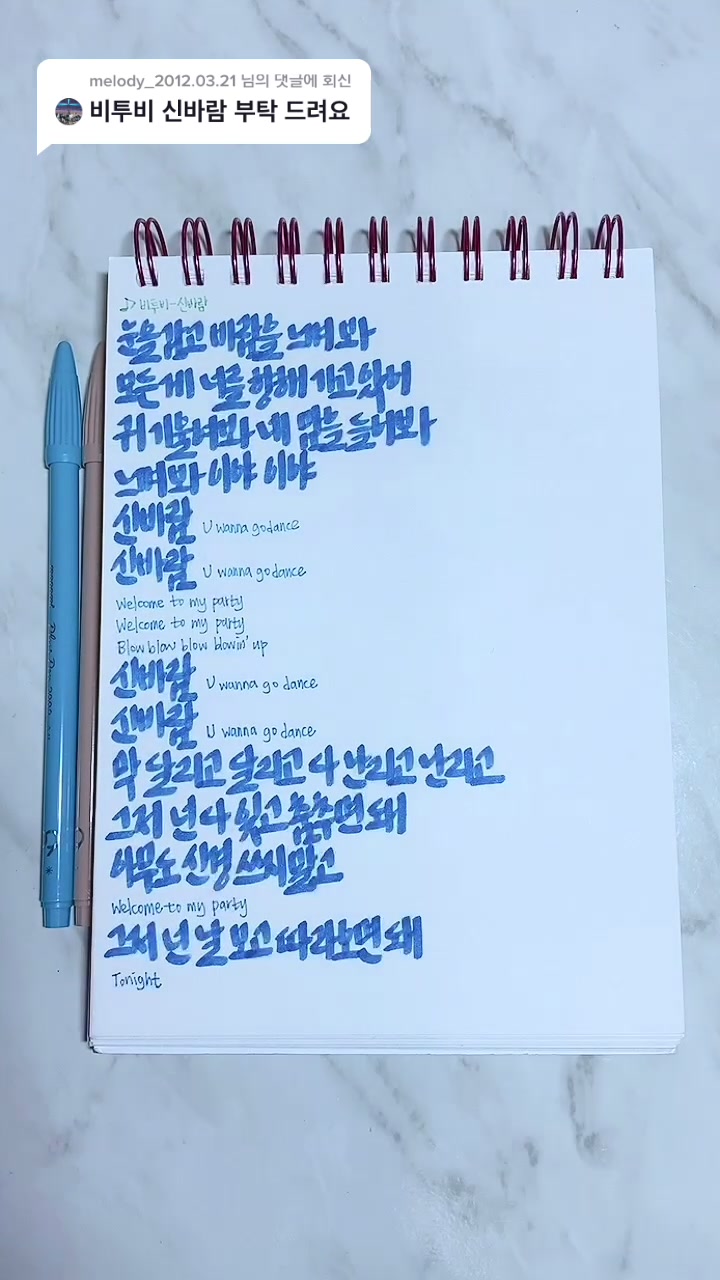 melody_2012.03.21 님의 댓글에 회신
비투비 신바람 부탁 드려요
♪ 비투비-신바람
눈을 감고 바람을 느껴봐
모든 게 너를 향해 가고 있어
귀 기울여봐 네 맘을 들어봐
느껴봐 이야 이야
신바람 U wanna go dance
신바람 U wanna go dance
Welcome to my party
Welcome to my party
Blow blow blow blowin' up
신바람 U wanna go dance
신바람 U wanna go dance
막 달리고 달리고 다 난리고 난리고
그저 넌 다 잊고 춤추면 돼
아무도 신경 쓰지 말고
Welcome to my party
그저 넌 날 보고 따라보면 돼
Tonight